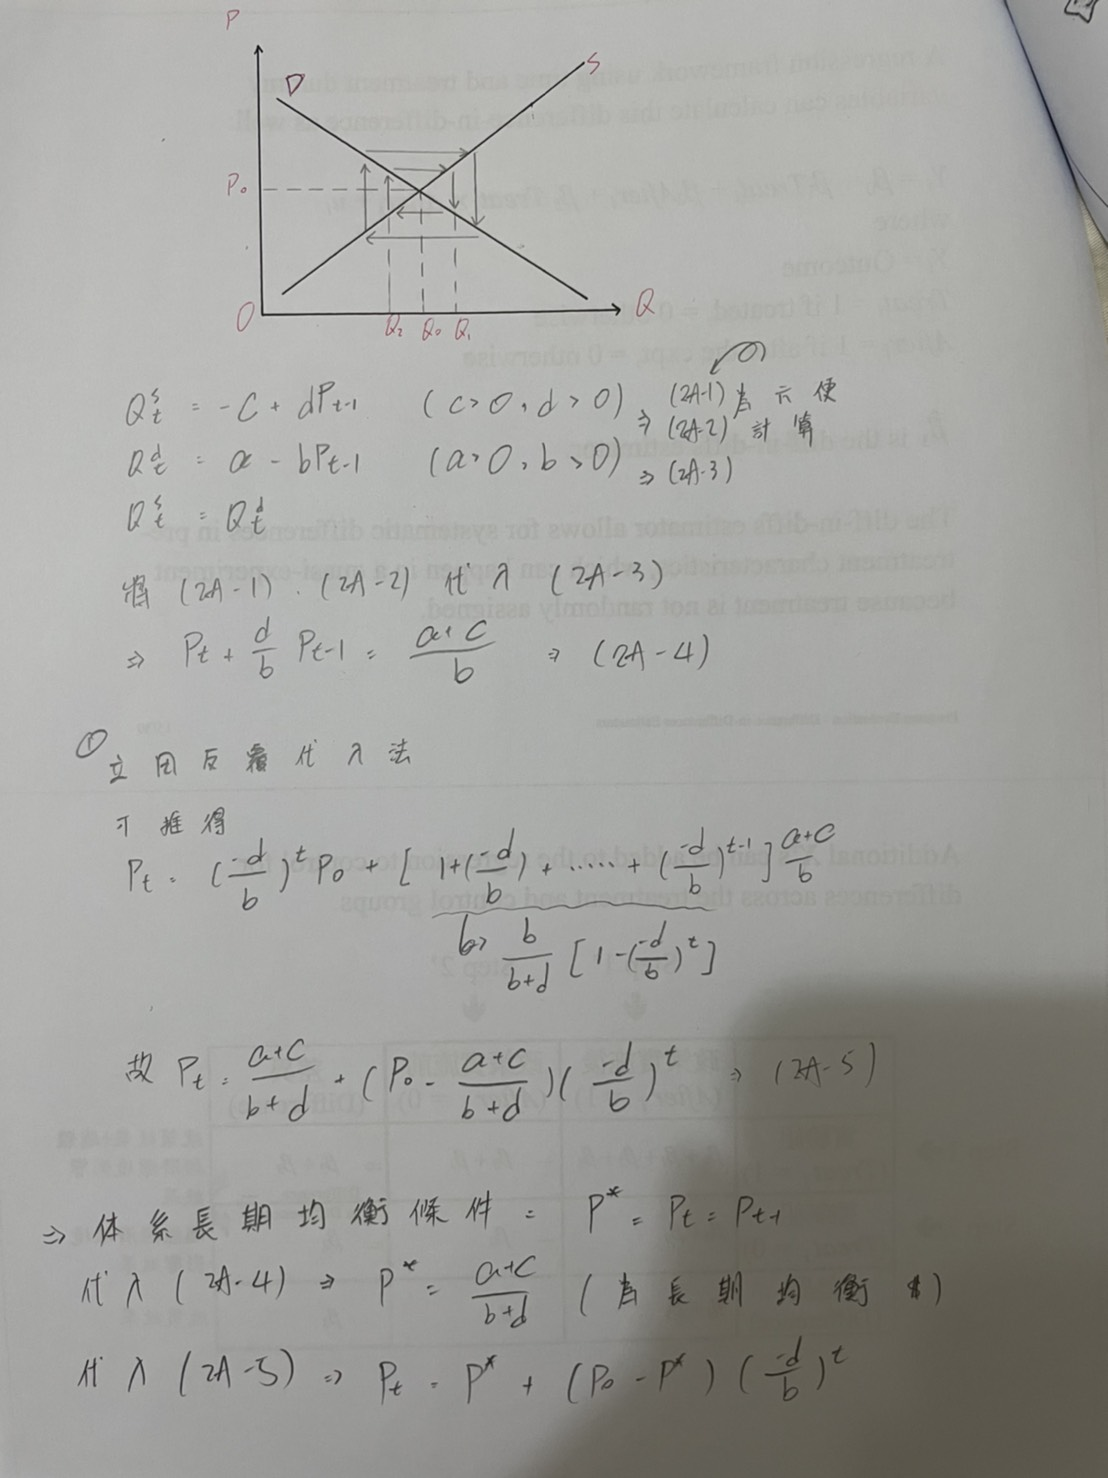 P
D
S
P₀
O
Q₂ Q₀ Q₁
Q
Qₜˢ = -C + dPₜ₋₁ (c>0, d>0) (2A-1) 為方便
⇒ (2A-2) 計算
Qₜᵈ = a - bPₜ₋₁ (a>0, b>0) ⇒ (2A-3)
Qₜˢ = Qₜᵈ
將 (2A-1)、(2A-2) 代入 (2A-3)
⇒ Pₜ + d/b Pₜ₋₁ = (a+c)/b ⇒ (2A-4)
① 反覆代入法
可推得
Pₜ = (-d/b)ᵗ P₀ + [1+(-d/b) + ..... + (-d/b)ᵗ⁻¹] (a+c)/b
b/(b+d) [1-(-d/b)ᵗ]
故 Pₜ = (a+c)/(b+d) + (P₀ - (a+c)/(b+d)) (-d/b)ᵗ ⇒ (2A-5)
⇒ 体系長期均衡條件 = P* = Pₜ = Pₜ₋₁
代入 (2A-4) ⇒ P* = (a+c)/(b+d) (為長期均衡)
代入 (2A-5) ⇒ Pₜ = P* + (P₀ - P*) (-d/b)ᵗ